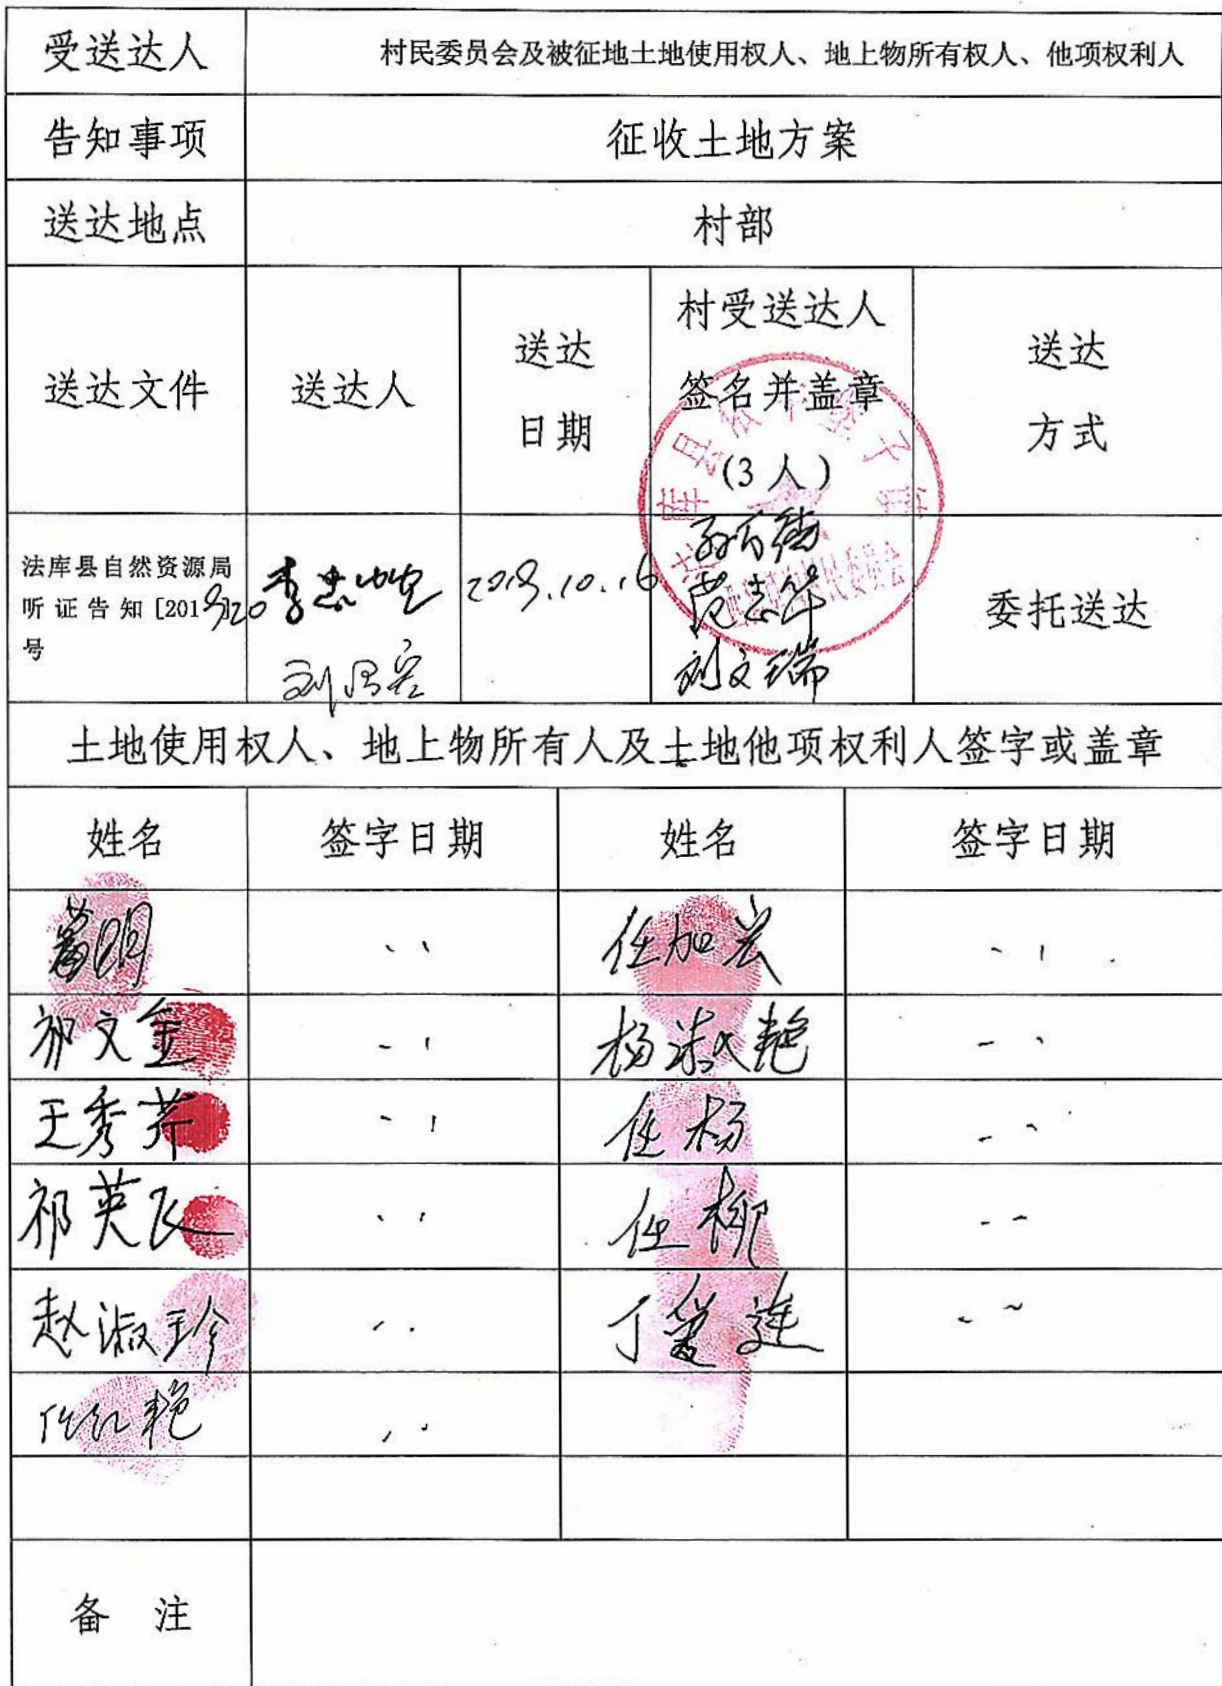 受送达人 村民委员会及被征地土地使用权人、地上物所有权人、他项权利人
告知事项 征收土地方案
送达地点 村部
送达文件 送达人 送达日期 村受送达人签名并盖章(3人) 送达方式
法库县自然资源局
听证告知[2019]20
号
2019.10.16
范志华
刘文瑞
委托送达
土地使用权人、地上物所有人及土地他项权利人签字或盖章
姓名 签字日期 姓名 签字日期
任加兴
祁文金 杨淑艳
王秀芹 任杨
祁英飞 任柳
赵淑珍 丁爱莲
任红艳
备 注